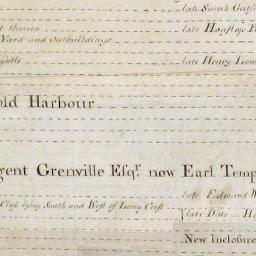 late Sarah
thereon
late
Yard and Outbuildings
late Henry
old Harbour
gent Grenville Esqr. now Earl Temp
late Edward W
Close lying South and West of Long Croft
late Ditto
New Inclosure